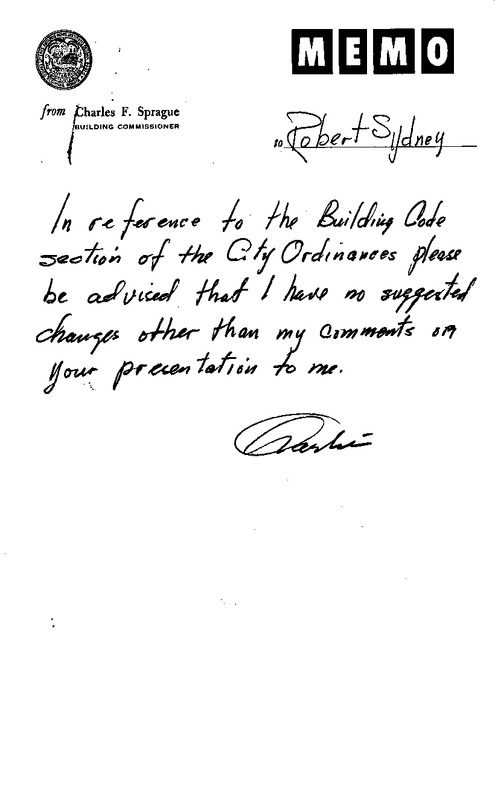 MEMO
from Charles F. Sprague
BUILDING COMMISSIONER
to Robert Sydney
In reference to the Building Code
section of the City Ordinances please
be advised that I have no suggested
changes other than my comments on
your presentation to me.
Charlie